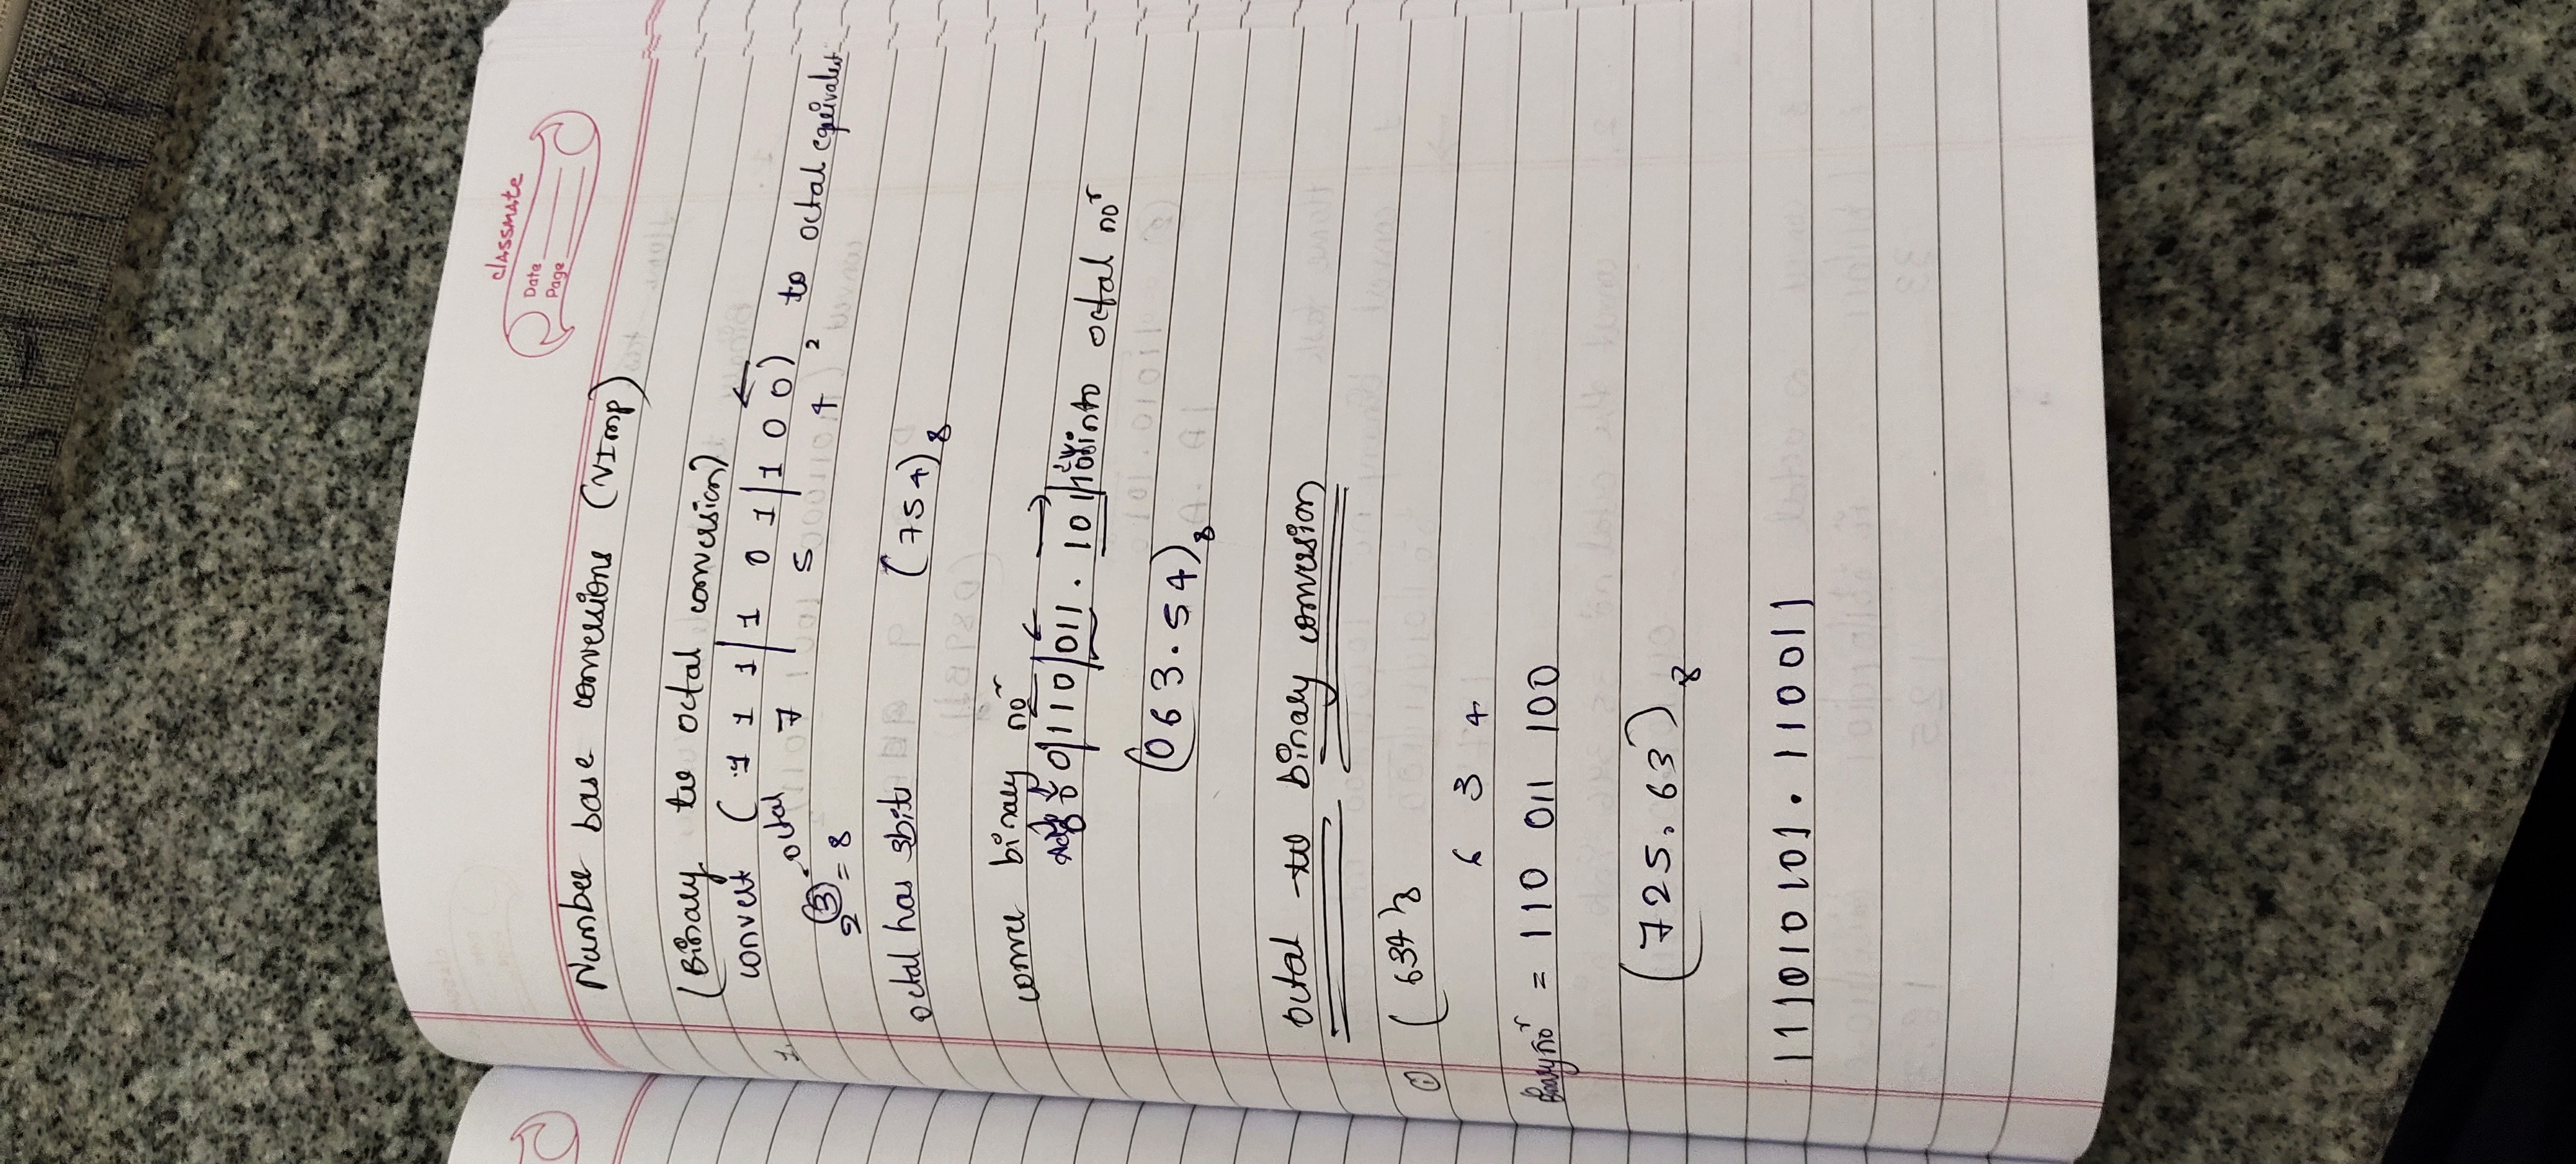 classmate
Date
Page
Number base conversions (VImp)
(Binary to octal conversion)
1. convert (1 1 1|1 0 1|1 0 0)₂ to octal equivalent
octal 7 5 4
2³ = 8
octal has 3bits (754)₈
binary noʳ
0 0 0|110|011 . 101|100 into octal noʳ
(063.54)₈
octal to binary conversion
① (634)₈
6 3 4
Binary noʳ = 110 011 100
(725.63)₈
111010101.110011